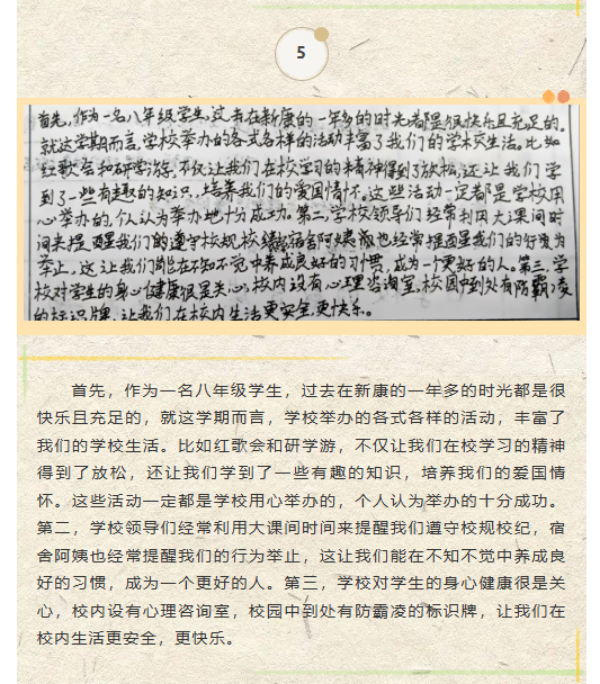 5
首先,作为一名八年级学生,过去在新康的一年多的时光都是很快乐且充足的。
就这学期而言,学校举办的各式各样的活动丰富了我们的学校生活。比如
红歌会和研学游,不仅让我们在校学习的精神得到了放松,还让我们学
到了一些有趣的知识,培养我们的爱国情怀。这些活动一定都是学校用
心举办的,个人认为举办地十分成功。第二,学校领导们经常利用大课间时
间来提醒我们遵守校规校纪,宿舍阿姨也经常提醒我们的行为
举止,这让我们能在不知不觉中养成良好的习惯,成为一个更好的人。第三,学
校对学生的身心健康很是关心,校内设有心理咨询室,校园中到处有防霸凌
的标识牌,让我们在校内生活更安全,更快乐。
首先，作为一名八年级学生，过去在新康的一年多的时光都是很
快乐且充足的，就这学期而言，学校举办的各式各样的活动，丰富了
我们的学校生活。比如红歌会和研学游，不仅让我们在校学习的精神
得到了放松，还让我们学到了一些有趣的知识，培养我们的爱国情
怀。这些活动一定都是学校用心举办的，个人认为举办的十分成功。
第二，学校领导们经常利用大课间时间来提醒我们遵守校规校纪，宿
舍阿姨也经常提醒我们的行为举止，这让我们能在不知不觉中养成良
好的习惯，成为一个更好的人。第三，学校对学生的身心健康很是关
心，校内设有心理咨询室，校园中到处有防霸凌的标识牌，让我们在
校内生活更安全，更快乐。